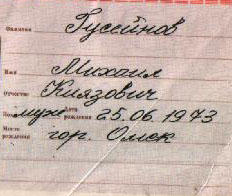 Фамилия Гусейнов
Имя Михаил
Отчество Князович
Пол муж Дата рождения 25.06.1973
Место рождения гор. Омск